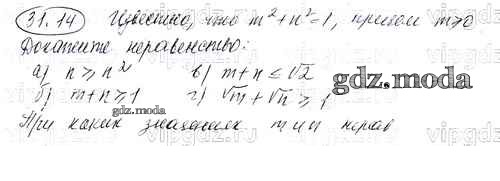 31.14 Известно, что m²+n²=1, причём m≥0
Докажите неравенство:
а) n ≥ n² в) m+n ≤ √2
б) m+n ≥ 1 г) √m + √n ≥ 1
При каких значениях m и n нерав
gdz.moda
gdz.moda
vipgdz